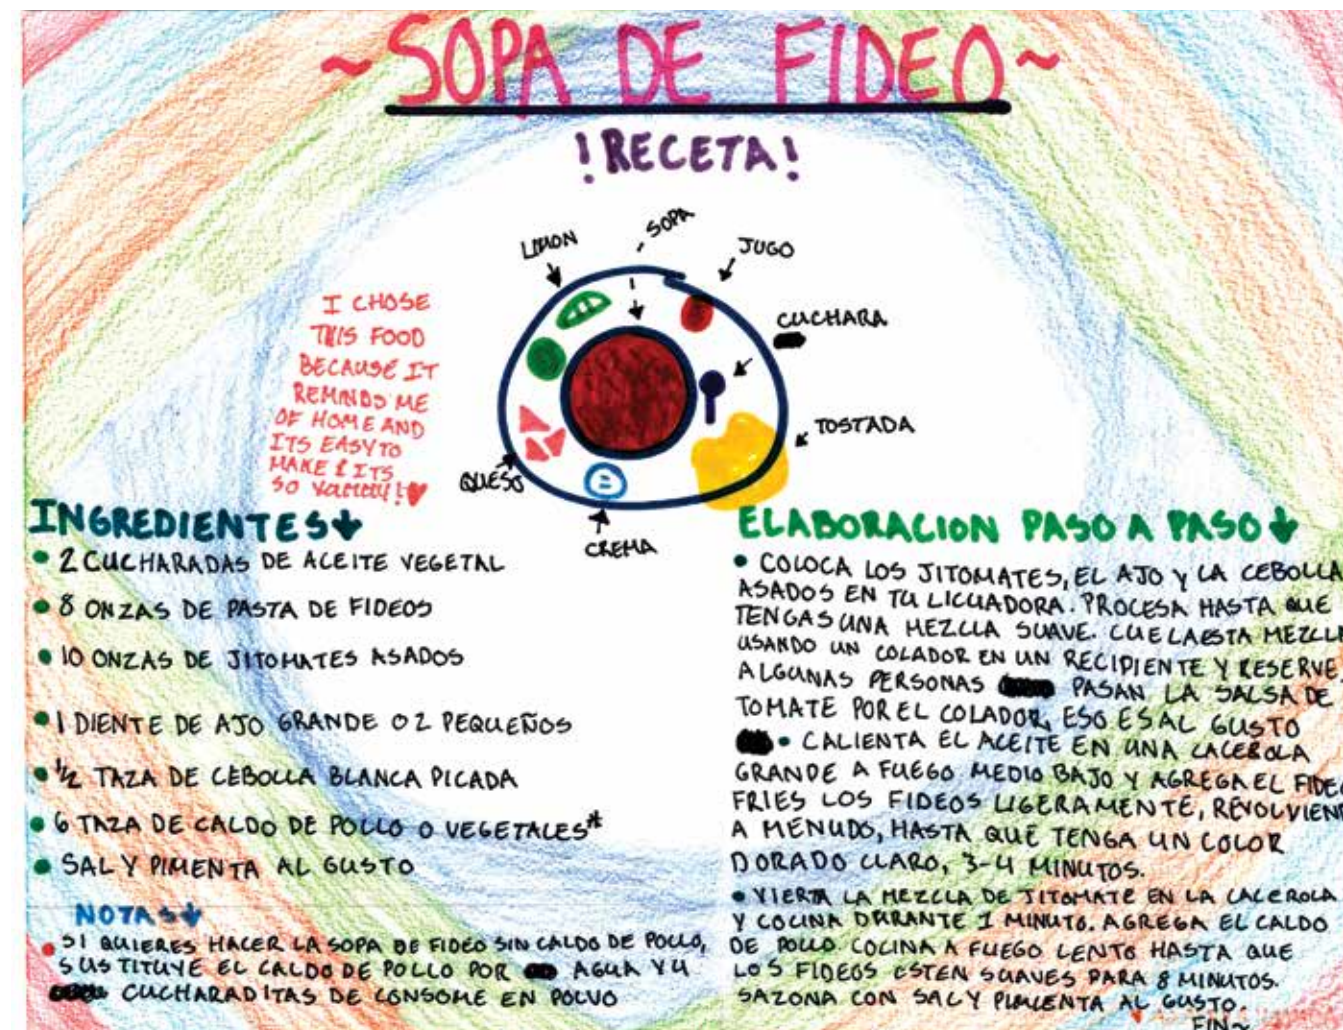 ~SOPA DE FIDEO~
!RECETA!
LIMON
SOPA
JUGO
CUCHARA
TOSTADA
QUESO
CREMA
I CHOSE
THIS FOOD
BECAUSE IT
REMINDS ME
OF HOME AND
ITS EASY TO
MAKE & ITS
SO YUMMY!
INGREDIENTES
• 2 CUCHARADAS DE ACEITE VEGETAL
• 8 ONZAS DE PASTA DE FIDEOS
• 10 ONZAS DE JITOMATES ASADOS
• 1 DIENTE DE AJO GRANDE O 2 PEQUEÑOS
• ½ TAZA DE CEBOLLA BLANCA PICADA
• 6 TAZA DE CALDO DE POLLO O VEGETALES*
• SAL Y PIMENTA AL GUSTO
NOTAS
• SI QUIERES HACER LA SOPA DE FIDEO SIN CALDO DE POLLO,
SUSTITUYE EL CALDO DE POLLO POR AGUA Y 4
CUCHARADITAS DE CONSOME EN POLVO
ELABORACION PASO A PASO
• COLOCA LOS JITOMATES, EL AJO Y LA CEBOLLA
ASADOS EN TU LICUADORA. PROCESA HASTA QUE
TENGAS UNA MEZCLA SUAVE. CUELA ESTA MEZCLA
USANDO UN COLADOR EN UN RECIPIENTE Y RESERVE.
ALGUNAS PERSONAS PASAN LA SALSA DE
TOMATE POR EL COLADOR, ESO ES AL GUSTO
• CALIENTA EL ACEITE EN UNA CACEROLA
GRANDE A FUEGO MEDIO BAJO Y AGREGA EL FIDEO
FRIES LOS FIDEOS LIGERAMENTE, REVOLVIEND
A MENUDO, HASTA QUE TENGA UN COLOR
DORADO CLARO, 3-4 MINUTOS.
• VIERTA LA MEZCLA DE JITOMATE EN LA CACEROLA
Y COCINA DURANTE 1 MINUTO. AGREGA EL CALDO
DE POLLO. COCINA A FUEGO LENTO HASTA QUE
LOS FIDEOS ESTEN SUAVES PARA 8 MINUTOS.
SAZONA CON SAL Y PIMIENTA AL GUSTO.
FIN~